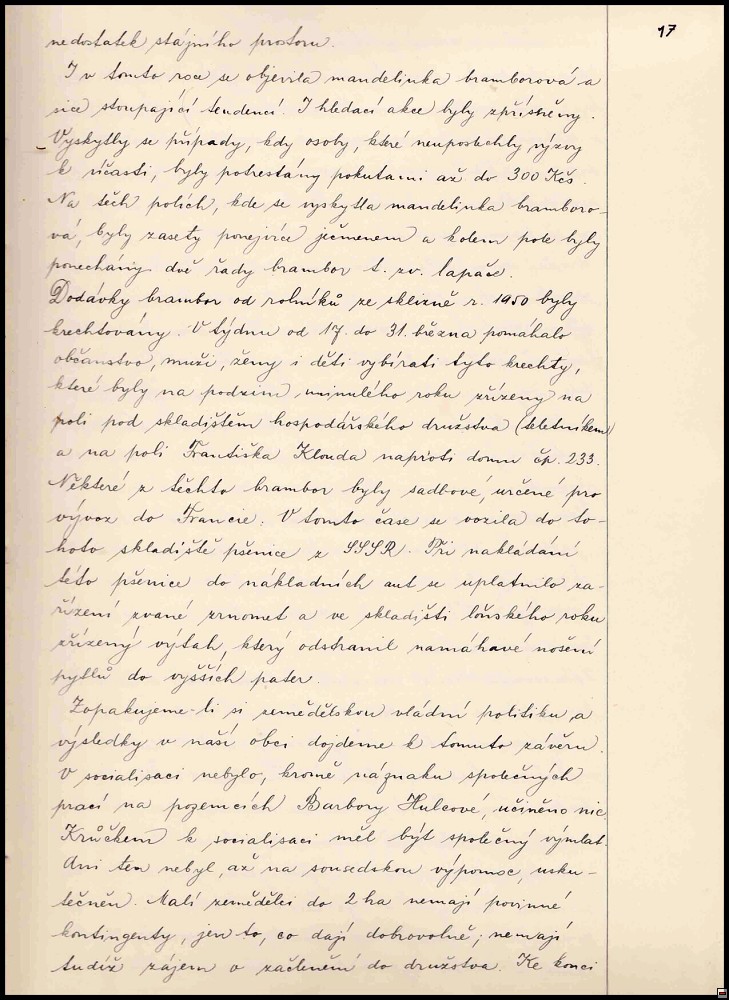 17
nedostatek stájního prostoru.
I v tomto roce se objevila mandelinka bramborová a
sice stoupající tendencí. I hledací akce byly zpřísněny.
Vyskytly se případy, kdy osoby, které neuposlechly výzvy
k účasti, byly potrestány pokutami až do 300 Kčs.
Na těch polích, kde se vyskytla mandelinka bramboro-
vá, byly zasety ponejvíce ječmenem a kolem pole byly
ponechány dvě řady brambor t. zv. lapače.
Dodávky brambor od rolníků ze sklizně r. 1950 byly
krechtovány. V týdnu od 17. do 31. března pomáhalo
občanstvo, muži, ženy i děti vybírati tyto krechty,
které byly na podzim minulého roku zřízeny na
poli pod skladištěm hospodářského družstva (teletníkem)
a na poli Františka Klouda naproti domu čp. 233.
Některé z těchto brambor byly sadbové, určené pro
vývoz do Francie. V tomto čase se vozila do to-
hoto skladiště pšenice z SSSR. Při nakládání
této pšenice do nákladních aut se uplatnilo za-
řízení zvané zrnomet a ve skladišti loňského roku
zřízený výtah, který odstranil namáhavé nošení
pytlů do vyšších pater.
Zopakujeme-li si zemědělskou vládní politiku a
výsledky v naší obci dojdeme k tomuto závěru.
V socialisaci nebylo, kromě náznaku společných
prací na pozemcích Barbory Hulcové, učiněno nic.
Krůčkem k socialisaci měl být společný výmlat.
Ani ten nebyl, až na sousedskou výpomoc, usku-
tečněn. Malí zemědělci do 2 ha nemají povinné
kontingenty, jen to, co dají dobrovolně; nemají
tudíž zájem o začlenění do družstva. Ke konci